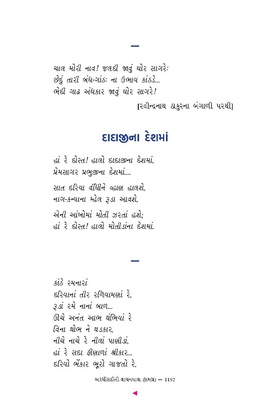 ચાલ મોરી નાવ! જલદી જાવું ઘોર સાગરેઃ
છેદું તારી બંધ-ગાંઠઃ ના ઉભાવ કાંઠડે...
ભેદી ગાઢ અંધકાર જાવું ઘોર સાગરે!
[રવીન્દ્રનાથ ઠાકુરના બંગાળી પરથી]
દાદાજીના દેશમાં
હાં રે દોસ્ત! હાલો દાદાજીના દેશમાં,
પ્રેમસાગર પ્રભુજીના દેશમાં...
સાત દરિયા વીંધીને વ્હાણ હાલશે,
નાગ-કન્યાના મ્હેલ રૂડા આવશે.
એની આંખોમાં મોતી ઝરતાં હશે;
હાં રે દોસ્ત! હાલો મોતીડાંના દેશમાં.
કાંઠે રમનારાં
દરિયાનાં તીર રળિયામણાં રે,
રૂડાં રમે નાનાં બાળ...
ઊંચે અનંત આભ થંભિયાં રે
વિના થોભ ને થડકાર,
નીચે નાચે રે નીલાં પાણીડાં,
હાં રે સદા ફીણાળાં શ્રીકાર...
દરિયો ભેંકાર ભૂરો ગાજતો રે,
અરધીસદીની વાચનયાત્રા 1192